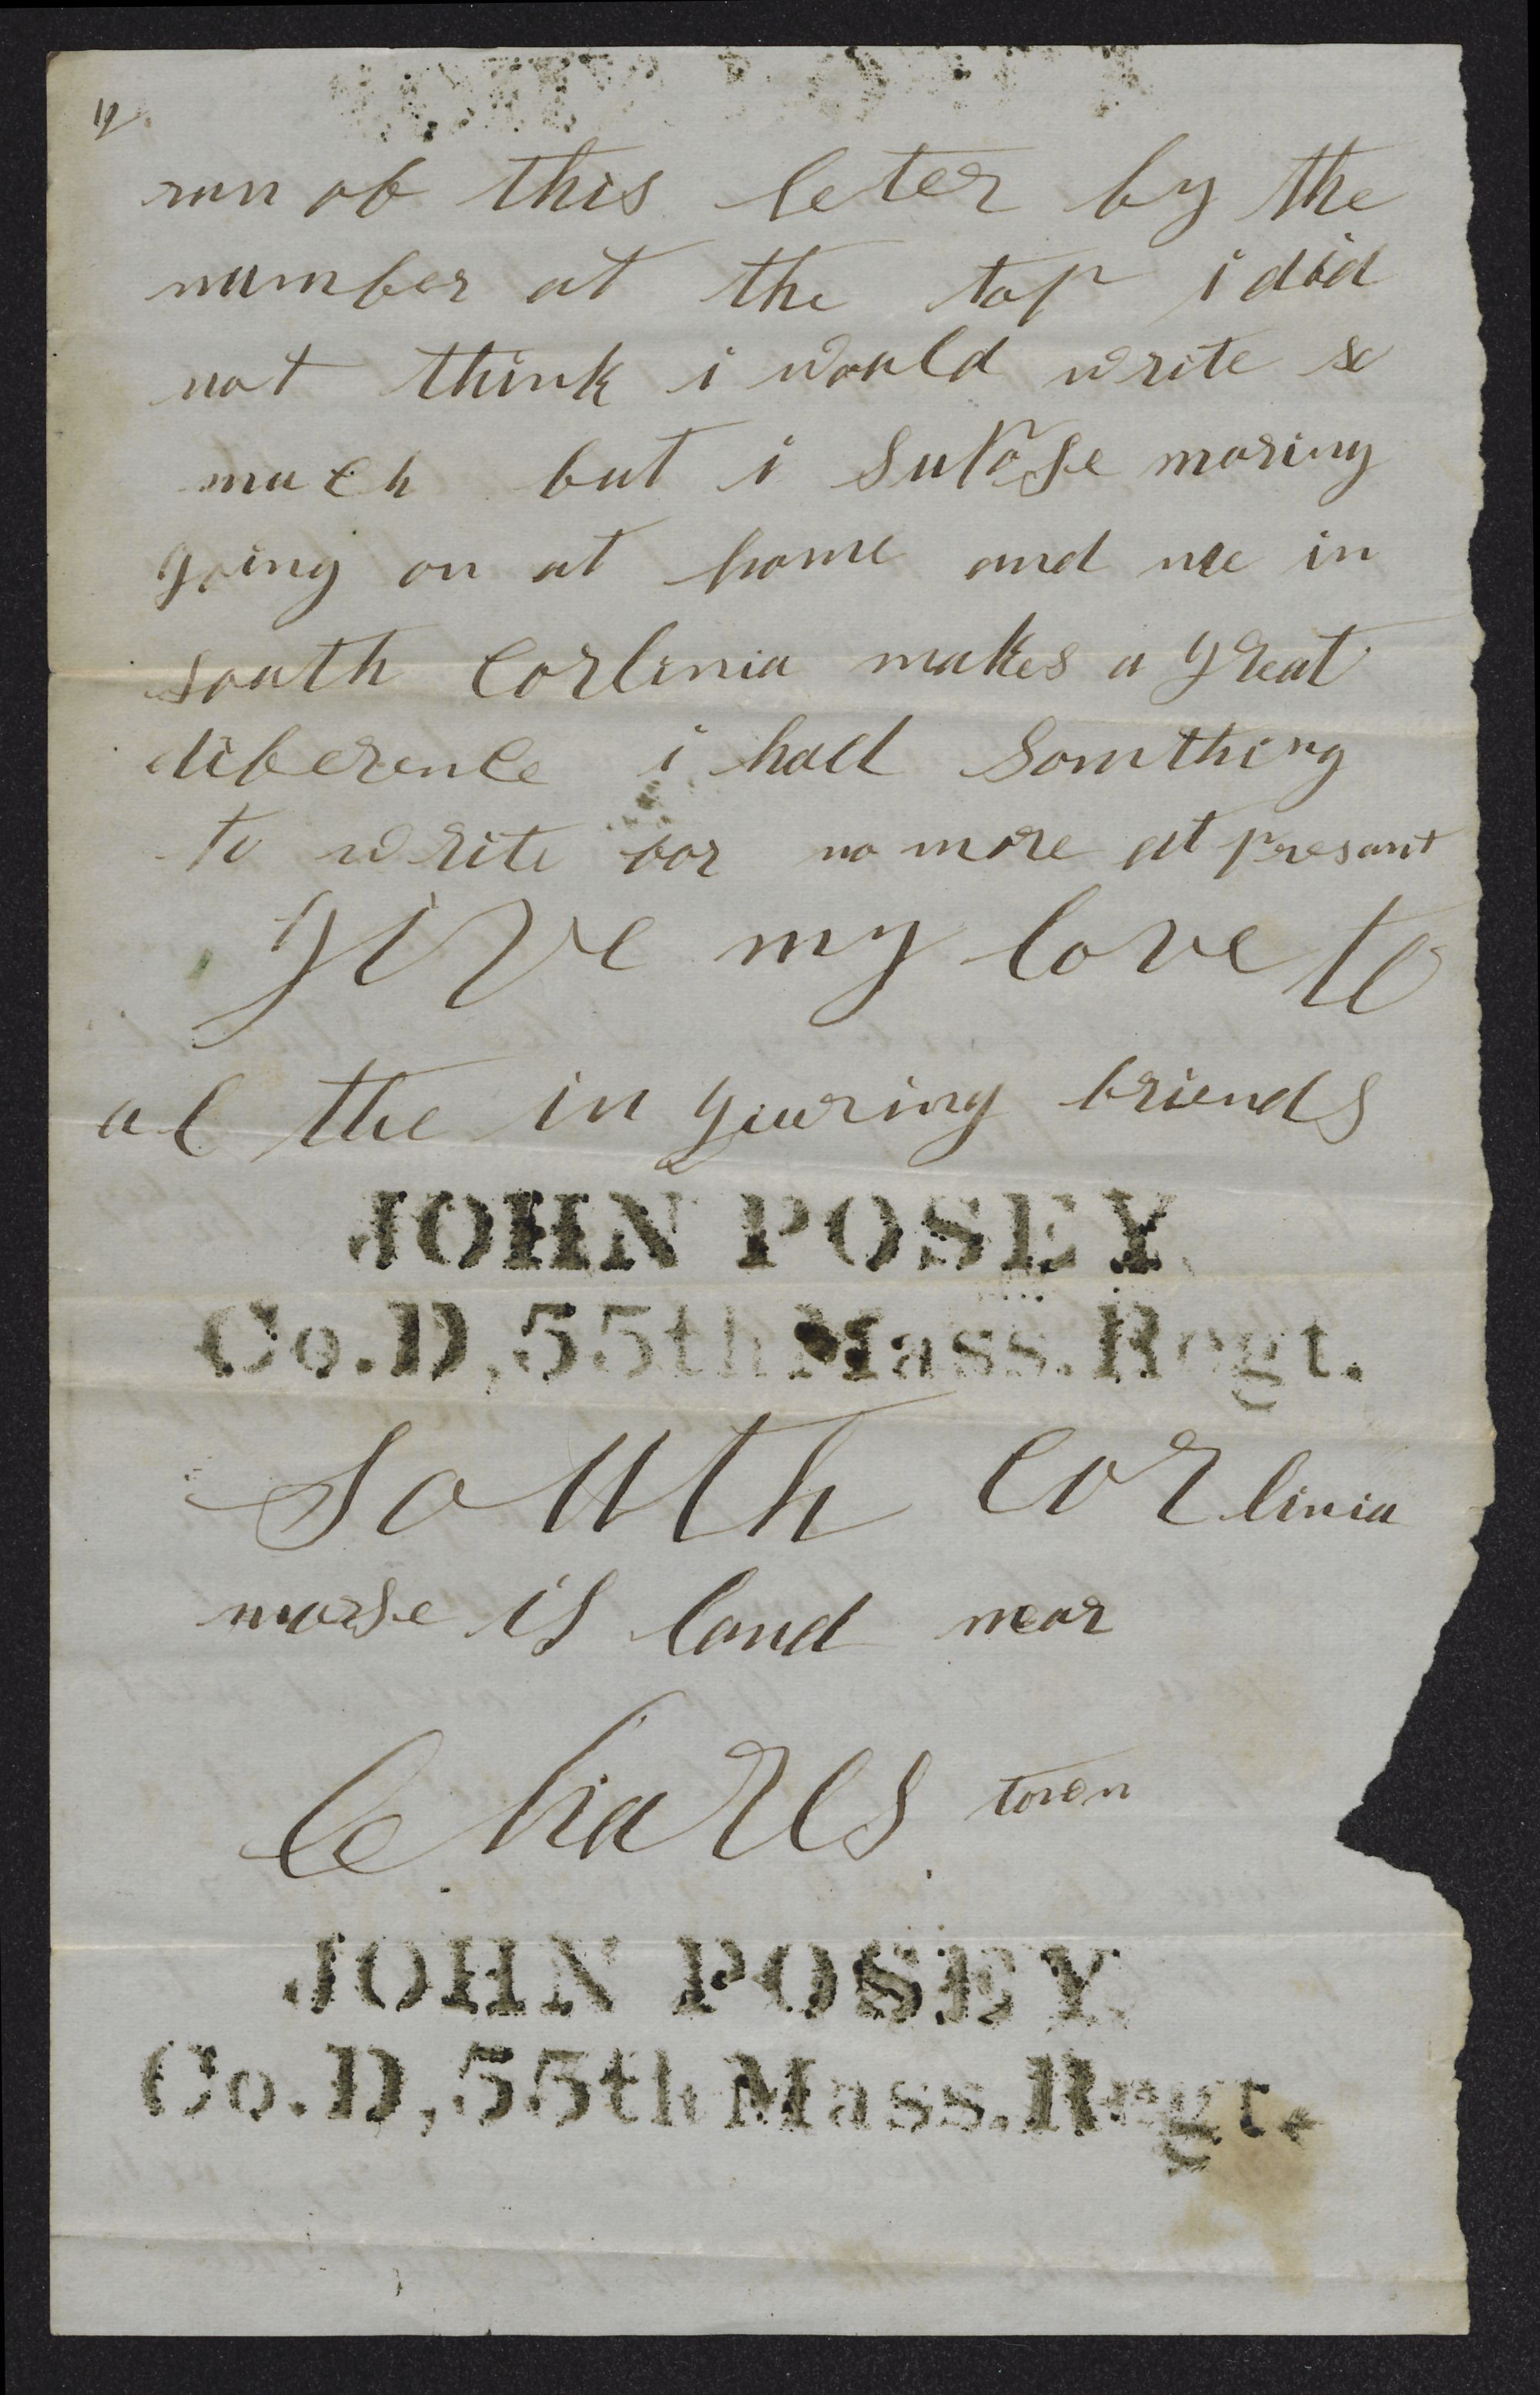 12
run of this leter by the
number at the top i did
not think i would write so
much but i supose maring
going on at home and me in
south Corlinia makes a great
diference i had Somthing
to write for no more at presant
give my love to
al the in quaring friends
JOHN POSEY
Co. D, 55th Mass. Regt.
South Cor linia
morse is land near
Charls town
JOHN POSEY.
Co. D, 55th Mass. Regt.